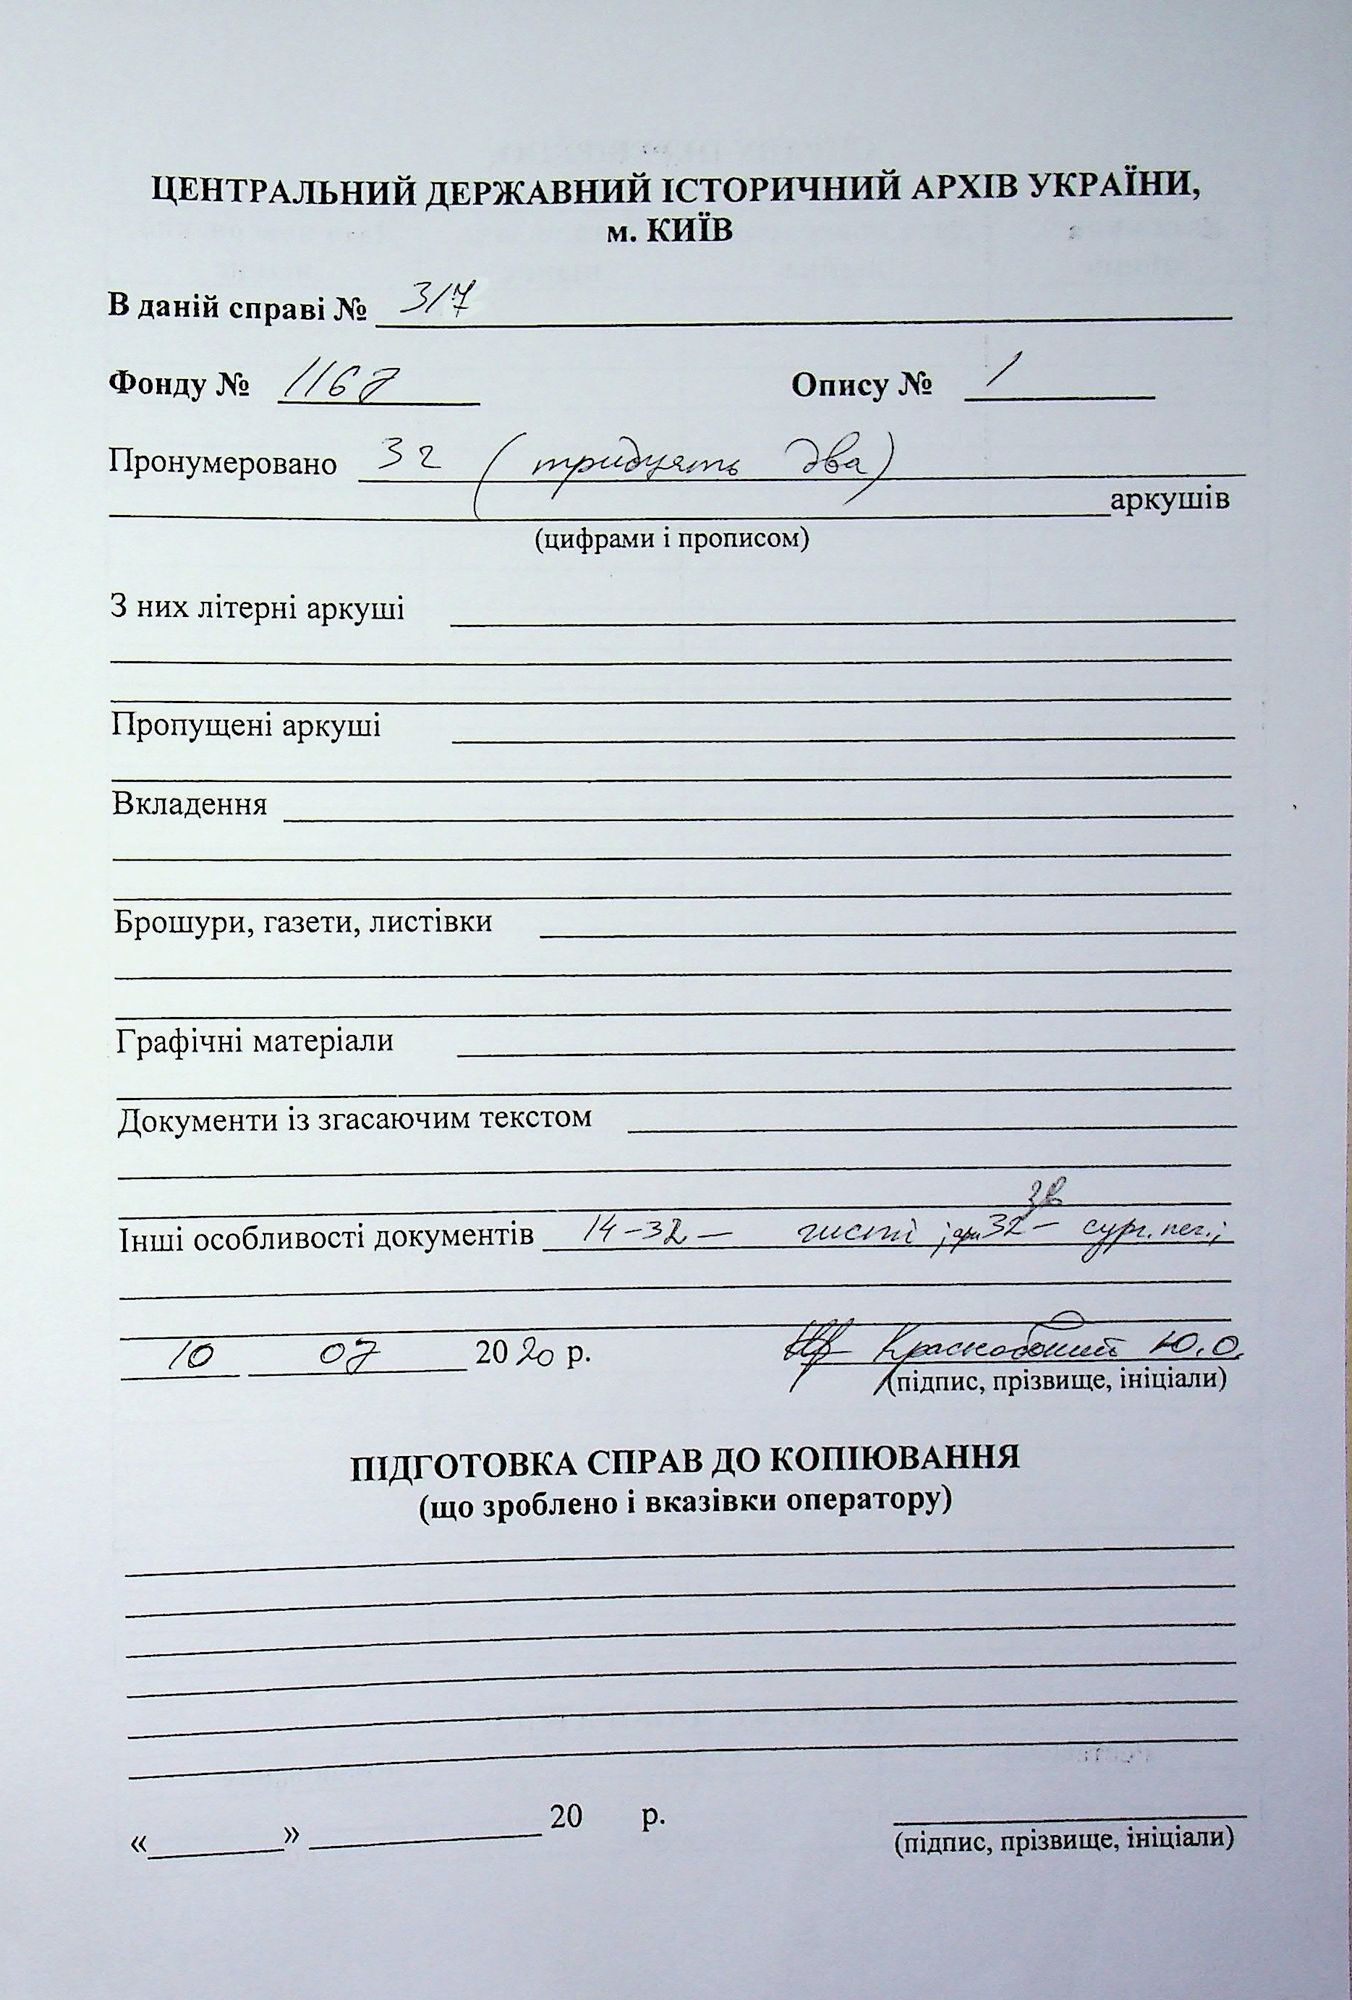 ЦЕНТРАЛЬНИЙ ДЕРЖАВНИЙ ІСТОРИЧНИЙ АРХІВ УКРАЇНИ,
м. КИЇВ
В даній справі № 317
Фонду № 1167 Опису № 1
Пронумеровано 32 (тридцять два)
аркушів
(цифрами і прописом)
З них літерні аркуші
Пропущені аркуші
Вкладення
Брошури, газети, листівки
Графічні матеріали
Документи із згасаючим текстом
Інші особливості документів 14-32 – чисті ; арк. 32 зв – сург. печ.;
10 07 2020 р. Ю.О.
(підпис, прізвище, ініціали)
ПІДГОТОВКА СПРАВ ДО КОПІЮВАННЯ
(що зроблено і вказівки оператору)
«________» ______________ 20 р.
(підпис, прізвище, ініціали)